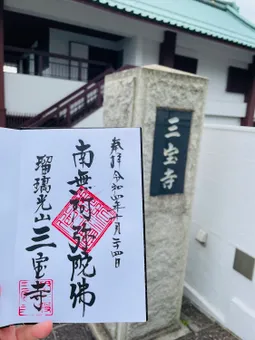 奉拝 令和四年十月二十四日
南無阿弥陀佛
瑠璃光山 三宝寺
三宝寺